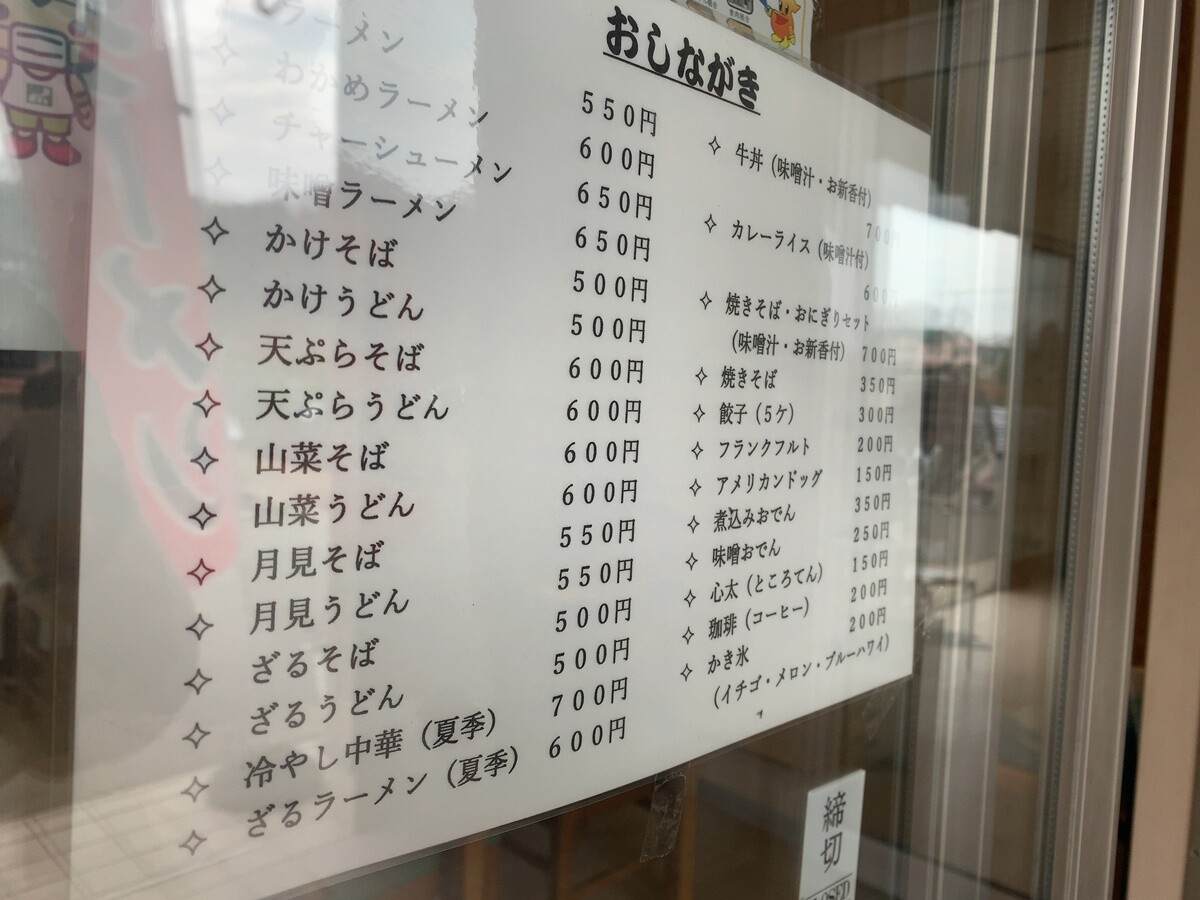 おしながき
ラーメン 550円
わかめラーメン 600円
✧ チャーシューメン 650円
✧ 味噌ラーメン 650円
✧ かけそば 500円
✧ かけうどん 500円
✧ 天ぷらそば 600円
✧ 天ぷらうどん 600円
✧ 山菜そば 600円
✧ 山菜うどん 600円
✧ 月見そば 550円
✧ 月見うどん 550円
✧ ざるそば 500円
✧ ざるうどん 500円
✧ 冷やし中華（夏季） 700円
✧ ざるラーメン（夏季） 600円
✧ 牛丼（味噌汁・お新香付）
700円
✧ カレーライス（味噌汁付）
600円
✧ 焼きそば・おにぎりセット
（味噌汁・お新香付） 700円
✧ 焼きそば 350円
✧ 餃子（5ケ） 300円
✧ フランクフルト 200円
✧ アメリカンドッグ 150円
✧ 煮込みおでん 350円
✧ 味噌おでん 250円
✧ 心太（ところてん） 150円
✧ 珈琲（コーヒー） 200円
✧ かき氷 200円
（イチゴ・メロン・ブルーハワイ）
締切
ーメン